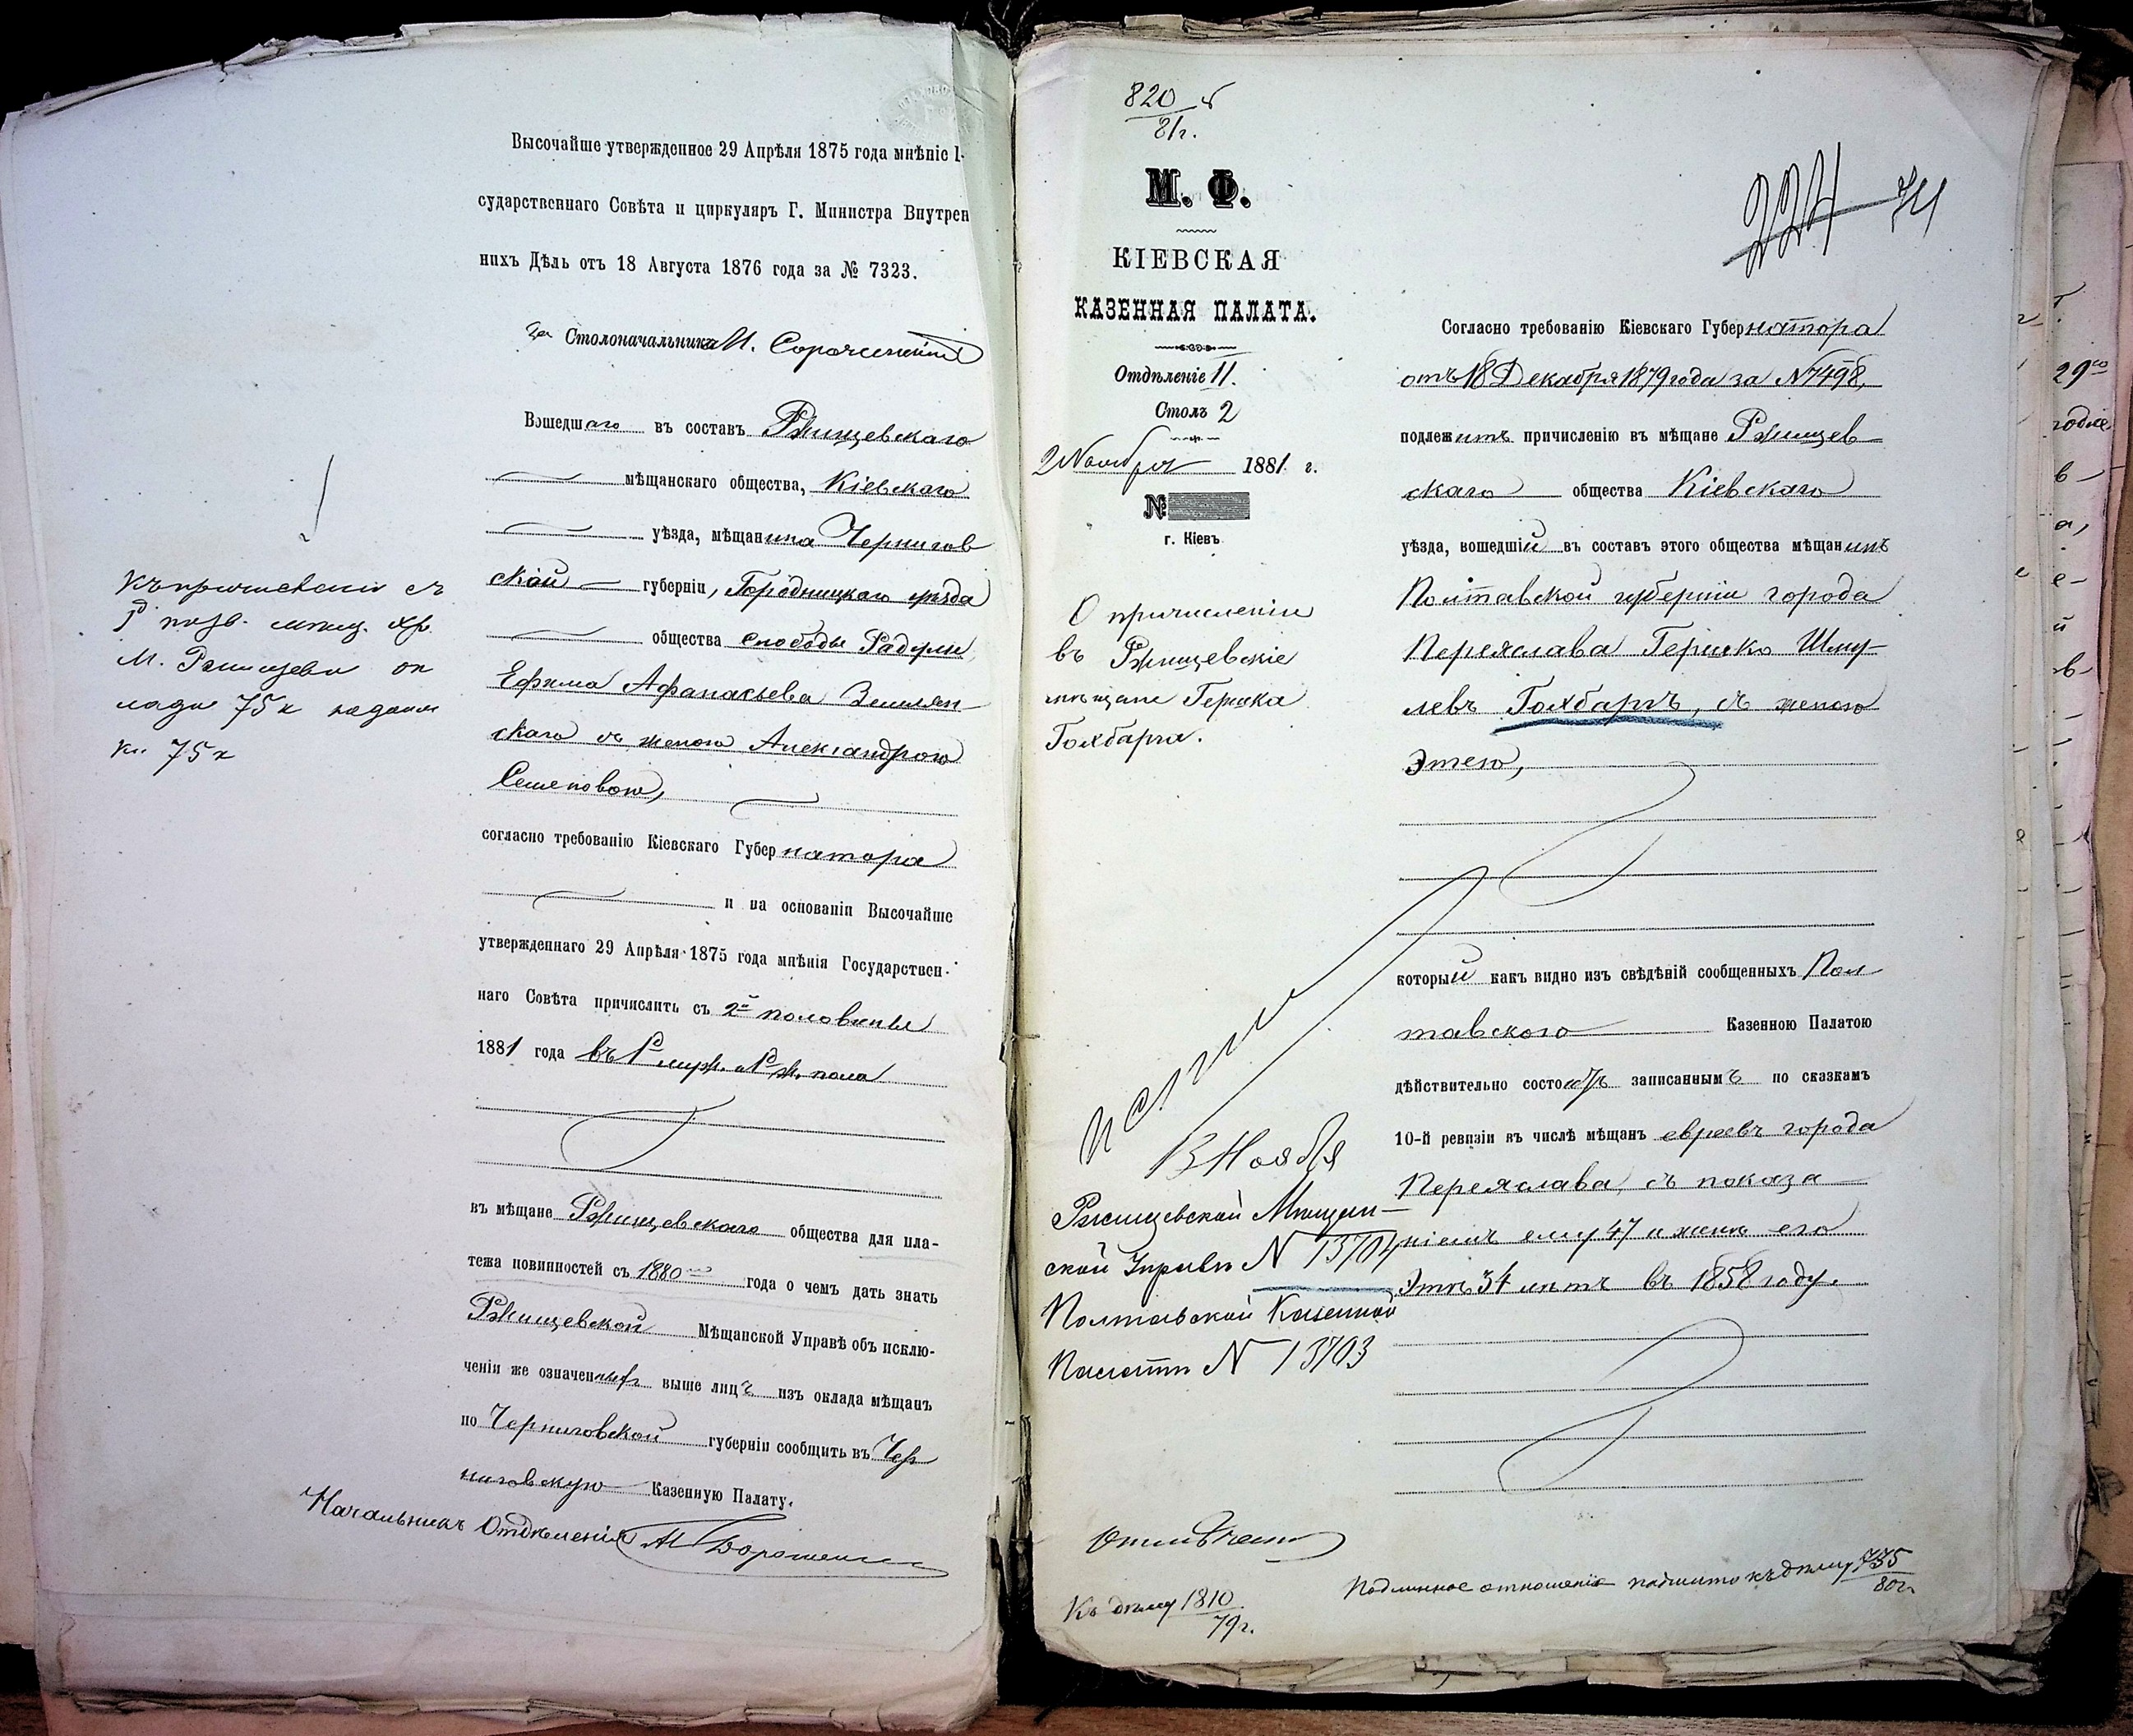 Высочайше утвержденное 29 Апрѣля 1875 года мнѣніе Г-
сударственнаго Совѣта и циркуляръ Г. Министра Внутрен
нихъ Дѣлъ отъ 18 Августа 1876 года за № 7323.
За Столоначальника И.
Вошедшаго въ составъ Ржищевскаго
мѣщанскаго общества, Кіевскаго
уѣзда, мѣщанина Чернигов
ской губерніи, Городницкаго уѣзда
общества слободы Радули,
Ефима Афанасьева Землян-
скаго съ женою Александрою
Семеновою,
согласно требованію Кіевскаго Губернатора
и на основаніи Высочайше
утвержденнаго 29 Апрѣля 1875 года мнѣнія Государствен-
наго Совѣта причислить съ 2й половины
1881 года въ 1 муж. и 1 ж. пола
въ мѣщане Ржищевскаго общества для пла-
тежа повинностей съ 1880 года о чемъ дать знать
Ржищевской Мѣщанской Управѣ объ исклю-
ченіи же означенныхъ выше лицъ изъ оклада мѣщанъ
по Черниговской губерніи сообщить въ Чер
ниговскую Казенную Палату.
Начальникъ Отдѣленія
Къ причисленію съ
М. Ржищева ок
лады 75 к
75 к
820
81г.
М. Ф.
КІЕВСКАЯ
КАЗЕННАЯ ПАЛАТА.
Отдѣленіе II.
Столъ 2
2 Ноября 1881 г.
№
г. Кіевъ
О причисленіи
въ Ржищевскіе
мѣщане Гершка
Гохбарга.
13 Ноября
Ржищевской Мѣщан-
ской Управѣ N 13704
Полтавской Казенной
Палатѣ N 13703
Къ дѣлу 1810
79г.
224 74
Согласно требованію Кіевскаго Губернатора
отъ 18 Декабря 1879 года за N 7498,
подлежитъ причисленію въ мѣщане Ржищев
скаго общества Кіевскаго
уѣзда, вошедшій въ составъ этого общества мѣщанинъ
Полтавской губерніи города
Переяслава Гершко Шму-
левъ Гохбаргъ, съ женою
Этею,
который какъ видно изъ свѣдѣній сообщенныхъ Пол
тавскою Казенною Палатою
дѣйствительно состоитъ записаннымъ по сказкамъ
10-й ревизіи въ числѣ мѣщанъ евреевъ города
Переяслава, съ показа
ніемъ ему 47 и женѣ его
Этѣ 34 лѣтъ въ 1858 году.
Подлинное отношеніе подшито къ дѣлу 735
80г.